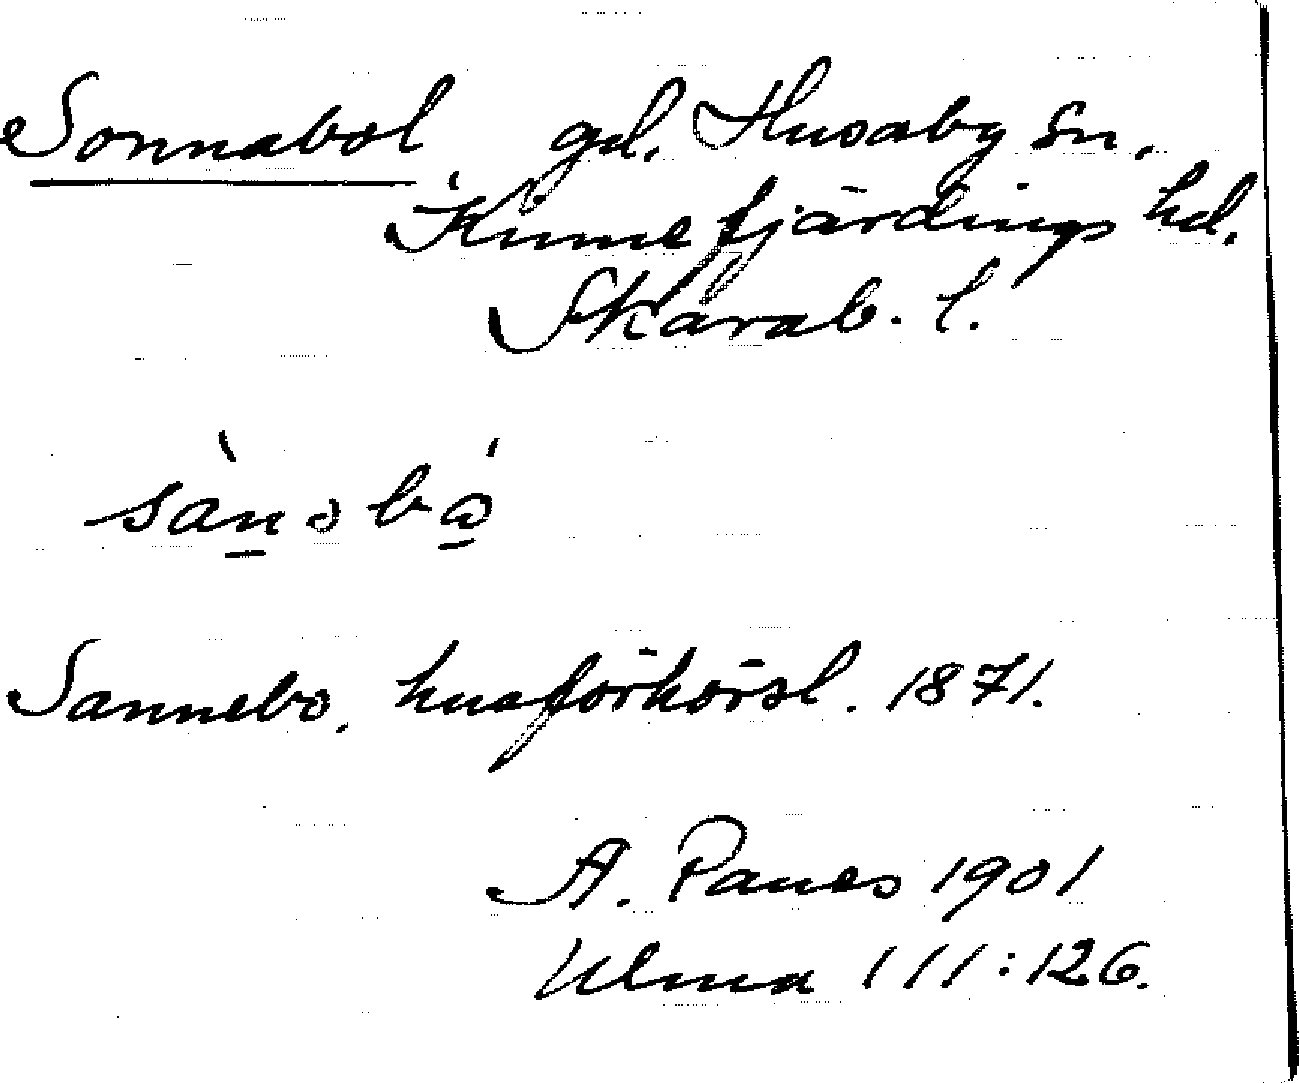 Sonnabol gd. Husaby sn.
Kinnefjärdings hd.
Skarab. l.
sànəbó
Sannebo, husförhörsl. 1871.
A. Panes 1901
Ulma 111:126.